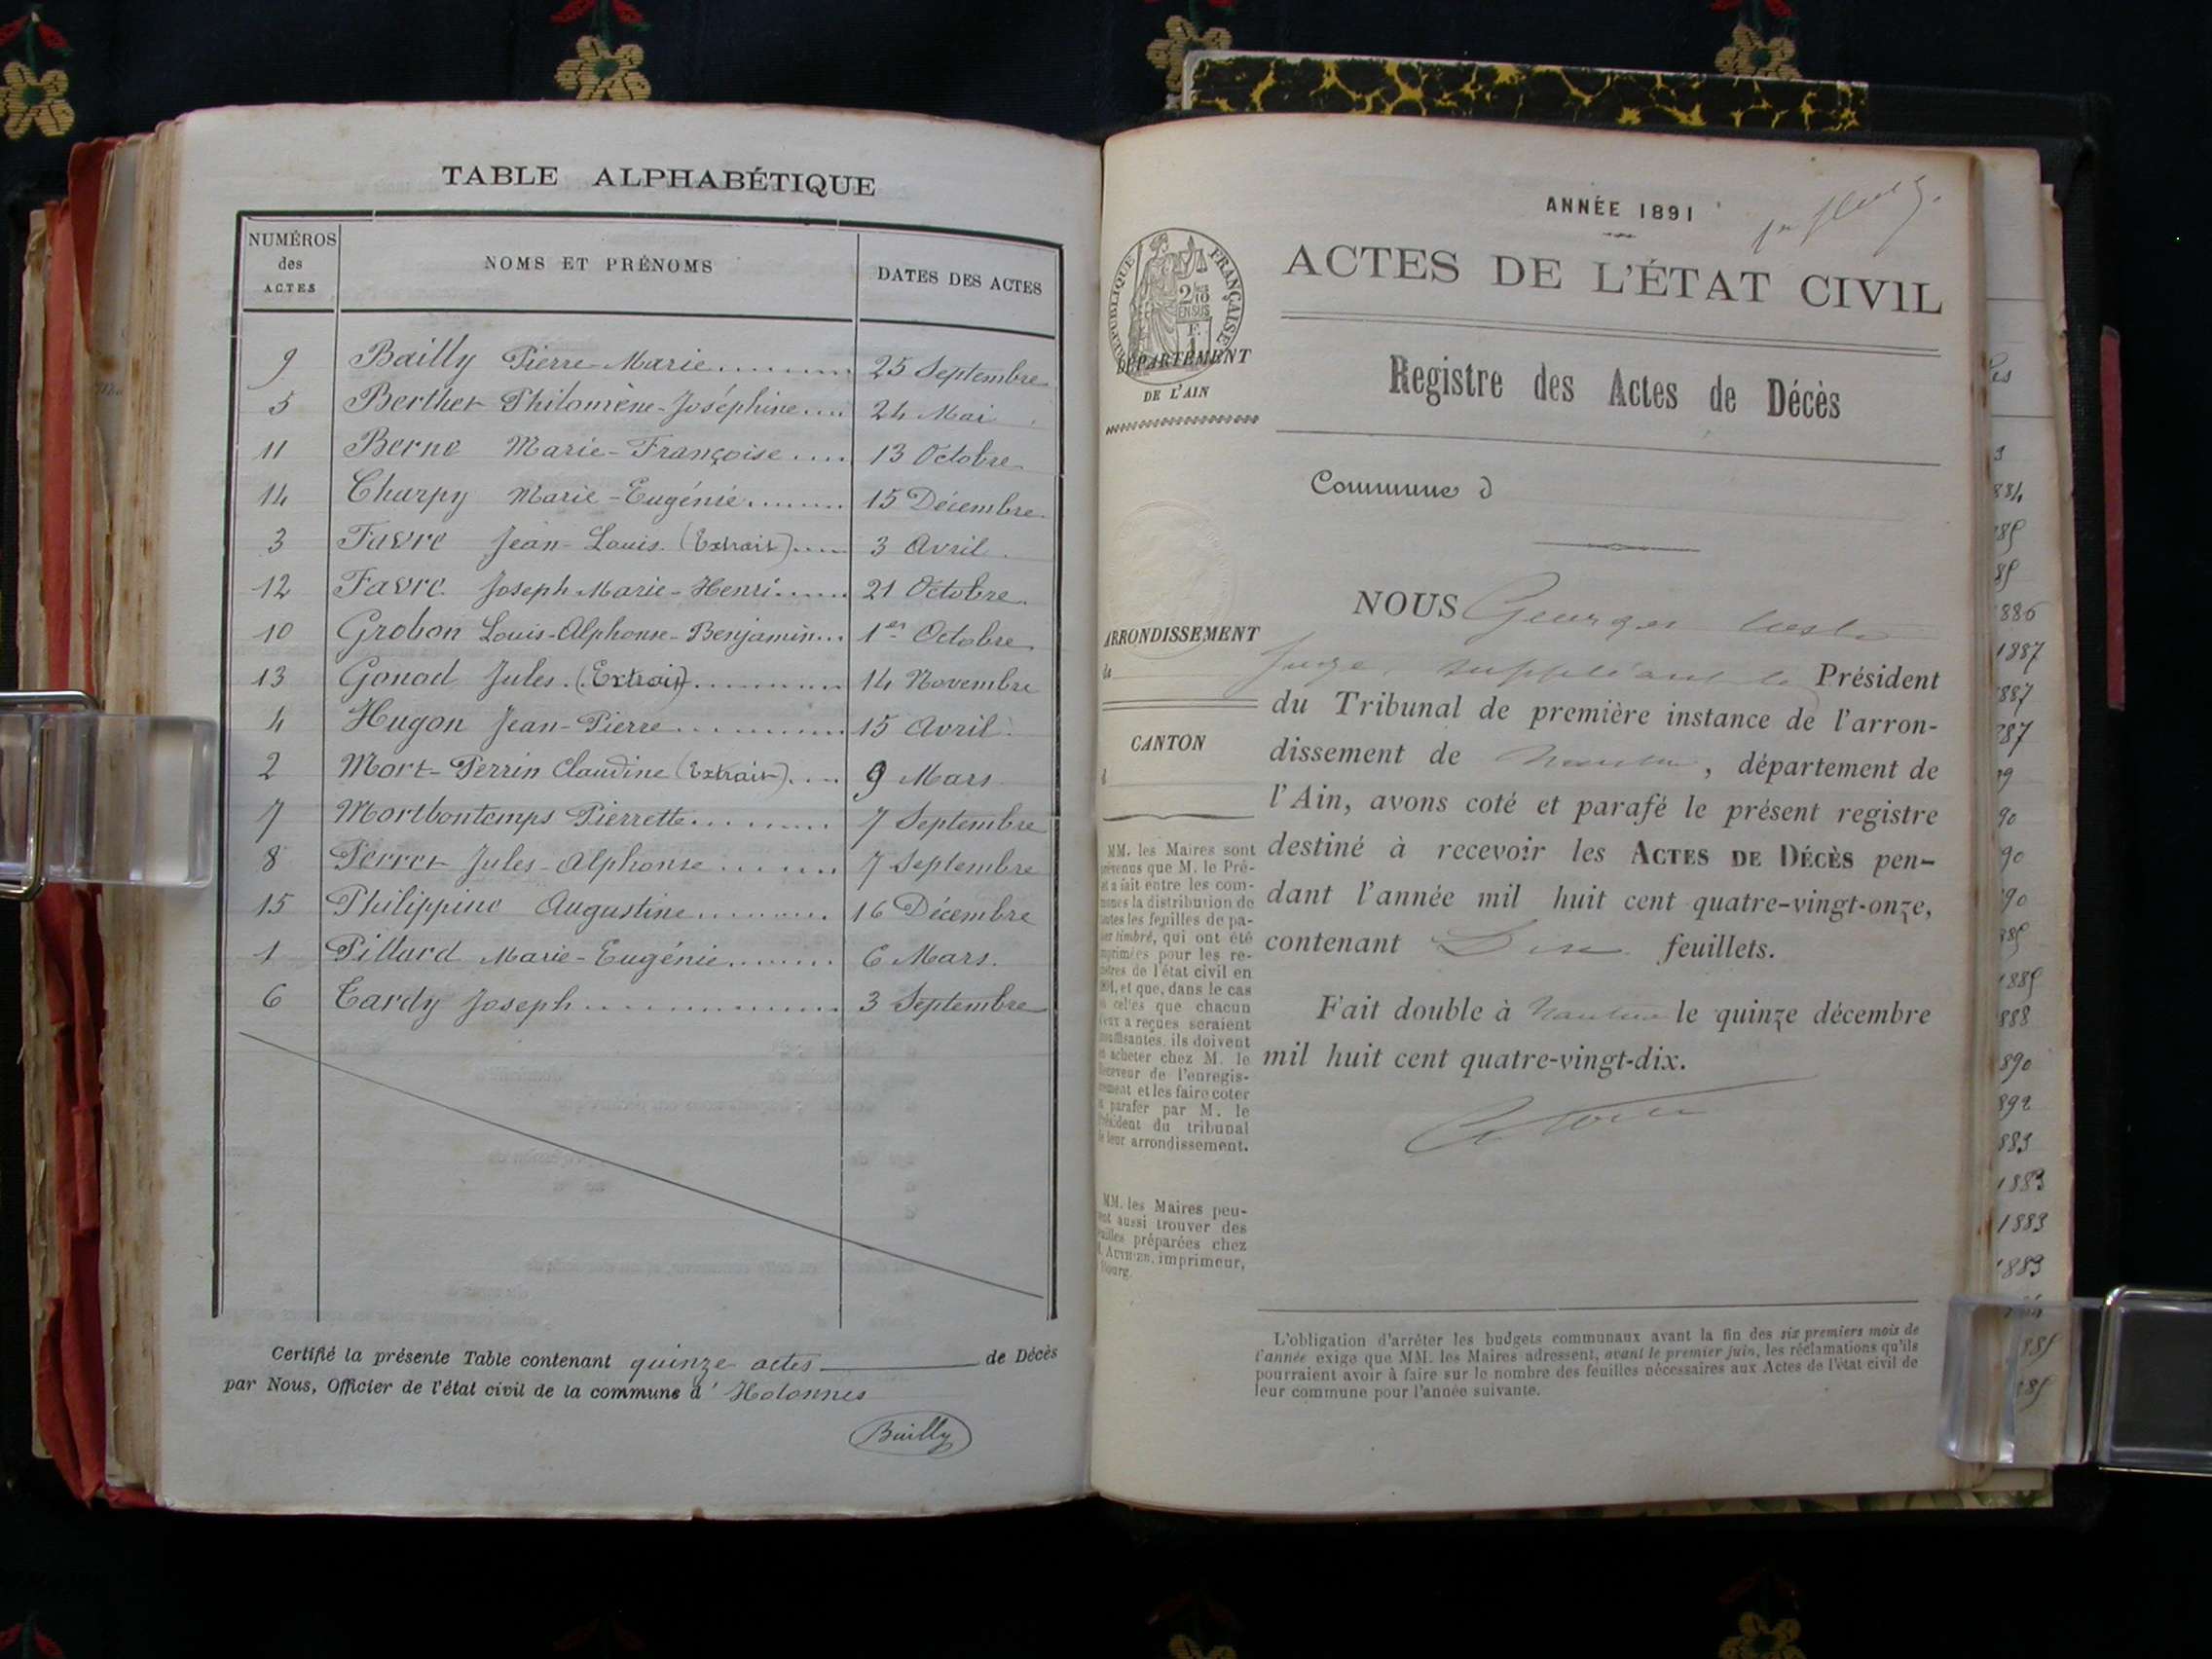 TABLE ALPHABÉTIQUE
NUMÉROS des ACTES
NOMS ET PRÉNOMS
DATES DES ACTES
9 Bailly Pierre-Marie 25 Septembre
5 Berthet Philomène-Joséphine 24 Mai
11 Berne Marie-Françoise 13 Octobre
14 Charpy Marie-Eugénie 15 Décembre
3 Favre Jean-Louis (Extrait) 3 Avril
12 Favre Joseph-Marie-Henri 21 Octobre
10 Grobon Louis-Alphonse-Benjamin 1er Octobre
13 Gonod Jules (Extrait) 14 Novembre
4 Hugon Jean-Pierre 15 Avril
2 Mort-Perrin Claudine (Extrait) 9 Mars
7 Mortbontemps Pierrette 7 Septembre
8 Perret Jules-Alphonse 7 Septembre
15 Philippine Augustine 16 Décembre
1 Pillard Marie-Eugénie 6 Mars
6 Tardy Joseph 3 Septembre
Certifié la présente Table contenant quinze actes de Décès
par Nous, Officier de l'état civil de la commune d' Hotonnes
Bailly
ANNÉE 1891
ACTES DE L'ÉTAT CIVIL
RÉPUBLIQUE FRANÇAISE
2/10 EN SUS
DÉPARTEMENT
DE L'AIN
Registre des Actes de Décès
Commune d
NOUS Georges
ARRONDISSEMENT
Juge suppléant Président
du Tribunal de première instance de l'arron-
CANTON
dissement de Nantua, département de
l'Ain, avons coté et parafé le présent registre
destiné à recevoir les ACTES DE DÉCÈS pen-
dant l'année mil huit cent quatre-vingt-onze,
contenant feuillets.
Fait double à Nantua le quinze décembre
mil huit cent quatre-vingt-dix.
MM. les Maires sont
prévenus que M. le Pré-
fet a fait entre les com-
munes la distribution de
toutes les feuilles de pa-
pier timbré, qui ont été
imprimées pour les re-
gistres de l'état civil en
1891, et que, dans le cas
où celles que chacun
d'eux a reçues seraient
insuffisantes, ils doivent
en acheter chez M. le
Receveur de l'enregis-
trement et les faire coter
et parafer par M. le
Président du tribunal
de leur arrondissement.
MM. les Maires peu-
vent aussi trouver des
feuilles préparées chez
M. AUTHIER, imprimeur,
Bourg.
L'obligation d'arrêter les budgets communaux avant la fin des six premiers mois de
l'année exige que MM. les Maires adressent, avant le premier juin, les réclamations qu'ils
pourraient avoir à faire sur le nombre des feuilles nécessaires aux Actes de l'état civil de
leur commune pour l'année suivante.
1887
1885
1883
1883
1883